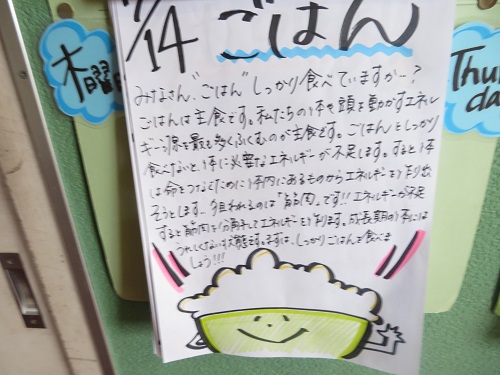 7/14 ごはん
木曜日
Thu
da
みなさん、"ごはん"しっかり食べていますかー?
ごはんは主食です。私たちの体や頭を動かすエネル
ギー源を最も多くふくむのが主食です。ごはんをしっかり
食べないと、体に必要なエネルギーが不足します。すると体
は命をつなぐために体内にあるものからエネルギーを作り出
そうとします。今狙われるのは「筋肉」です!!エネルギーが不足
すると筋肉を分解してエネルギーを作ります。成長期の体には
うれしくない状態です。まずは、しっかりごはんを食べま
しょう!!!